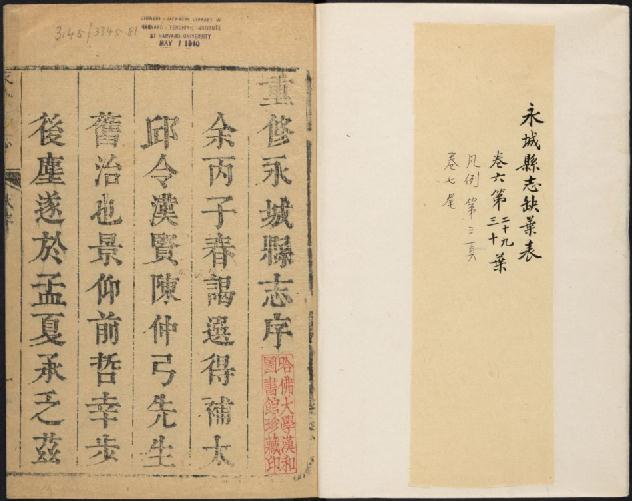 永城縣志缺葉表
卷六第二十九三十葉
凡例第三頁
卷七尾
CHINESE - JAPANESE LIBRARY OF
HARVARD - YENCHING INSTITUTE
AT HARVARD UNIVERSITY
MAY 1 1940
重修永城縣志序
哈佛大學漢和
圖書館珍藏印
余丙子春謁選得補太
邱令漢賢陳仲弓先生
舊治也景仰前哲幸步
後塵遂於孟夏承乏茲